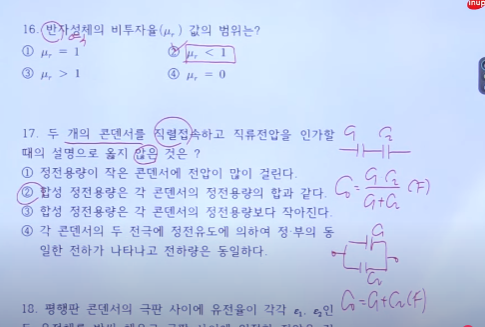 16. 반자성체의 비투자율(μᵣ) 값의 범위는?
① μᵣ = 1
② μᵣ < 1
③ μᵣ > 1
④ μᵣ = 0
17. 두 개의 콘덴서를 직렬접속하고 직류전압을 인가할
때의 설명으로 옳지 않은 것은 ?
① 정전용량이 작은 콘덴서에 전압이 많이 걸린다.
② 합성 정전용량은 각 콘덴서의 정전용량의 합과 같다.
③ 합성 정전용량은 각 콘덴서의 정전용량보다 작아진다.
④ 각 콘덴서의 두 전극에 정전유도에 의하여 정·부의 동
일한 전하가 나타나고 전하량은 동일하다.
C₁ C₂
C₀ = C₁ C₂ / C₁+C₂ (F)
C₁
C₂
C₀ = C₁+C₂ (F)
18. 평행판 콘덴서의 극판 사이에 유전율이 각각 ε₁, ε₂인